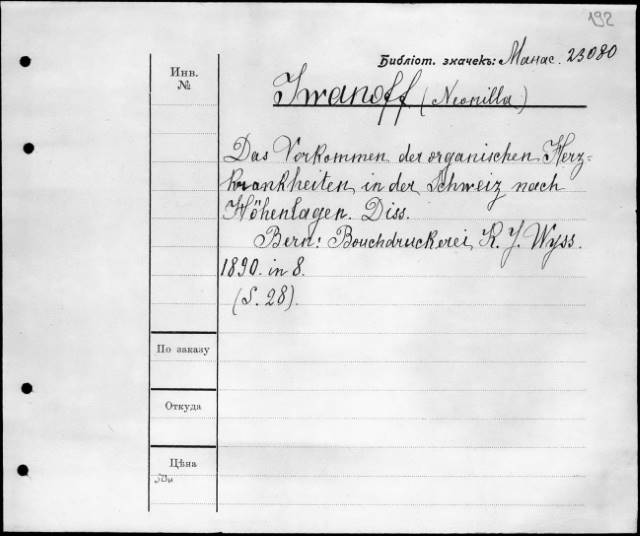 192
Библіот. значекъ: Манас. 23080
Инв.
№
Iwanoff (Neonilla)
Das Vorkommen der organischen Herz=
krankheiten in der Schweiz nach
Höhenlagen. Diss.
Bern: Bouchdruckerei K. J. Wyss.
1890. in 8.
(S. 28).
По заказу
Откуда
Цѣна